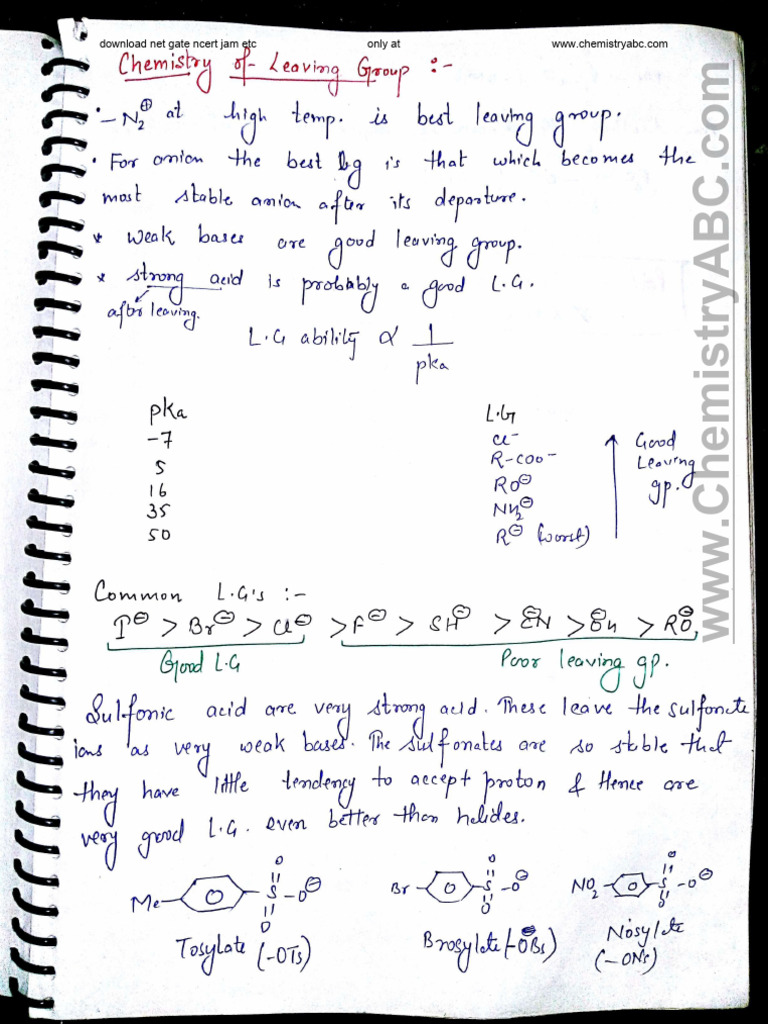 download net gate ncert jam etc only at www.chemistryabc.com
Chemistry of Leaving Group :-
• -N₂⊕ at high temp. is best leaving group.
• For anion the best lg is that which becomes the
most stable anion after its departure.
* weak bases are good leaving group.
* strong acid is probably a good L.G.
after leaving.
L.G ability ∝ 1/pka
pka L.G
-7 Cl⁻
5 R-COO⁻
16 RO⊖
35 NH₂⊖
50 R⊖ (worst)
Good
Leaving
gp.
Common L.G's :-
I⊖ > Br⊖ > Cl⊖ > F⊖ > SH⊖ > C̄N > OH⊖ > RO⊖
Good L.G Poor leaving gp.
Sulfonic acid are very strong acid. These leave the sulfonate
ions as very weak bases. The sulfonates are so stable that
they have little tendency to accept proton & Hence are
very good L.G. even better than halides.
Me- -S-O⊖ Br- -S-O⊖ NO₂- -S-O⊖
O O O O O O
Tosylate (-OTs) Brosylate (-OBs) Nosylate
(-ONs)
www.ChemistryABC.com